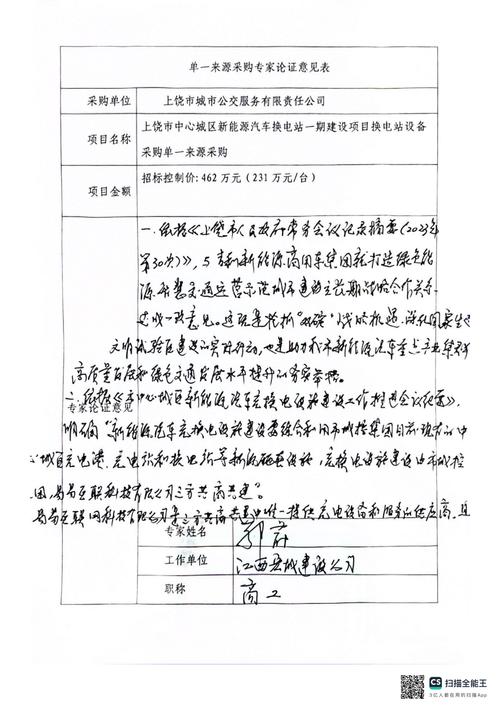 单一来源采购专家论证意见表
采购单位 上饶市城市公交服务有限责任公司
项目名称 上饶市中心城区新能源汽车换电站一期建设项目换电站设备
采购单一来源采购
项目金额 招标控制价: 462 万元（231 万元/台）
一、依据《上饶市人民政府常务会议记录摘要（2023年
第30次）》, 与吉利新能源商用车集团就打造绿色能
源智慧交通运营示范城市建立长期战略合作关系
达成一致意见。这既是抢抓"双碳"战略机遇、深化国家生态
文明试验区建设的实际行动, 也是助力我市新能源汽车重点产业
高质量发展和绿色交通发展水平提升的务实举措。
二、依据《中心城区新能源汽车充换电设施建设工作推进会议纪要》,
专家论证意见
明确"新能源汽车充换电设施建设要结合利用市城控集团目前现有的中
心城区充电港、充电站和换电站等新能源基础设施, 充换电设施建设由市城控
集团、易易互联科技有限公司三方共商共建"。
易易互联网科技有限公司是三方共商共建中唯一提供充电设备和服务的供应商, 且
专家姓名
工作单位 江西 城建设公司
职称 高工
扫描全能王
3亿人都在用的扫描App